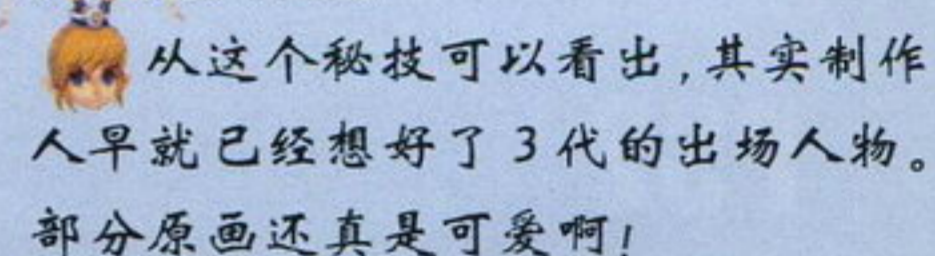 从这个秘技可以看出，其实制作
人早就已经想好了3代的出场人物。
部分原画还真是可爱啊！